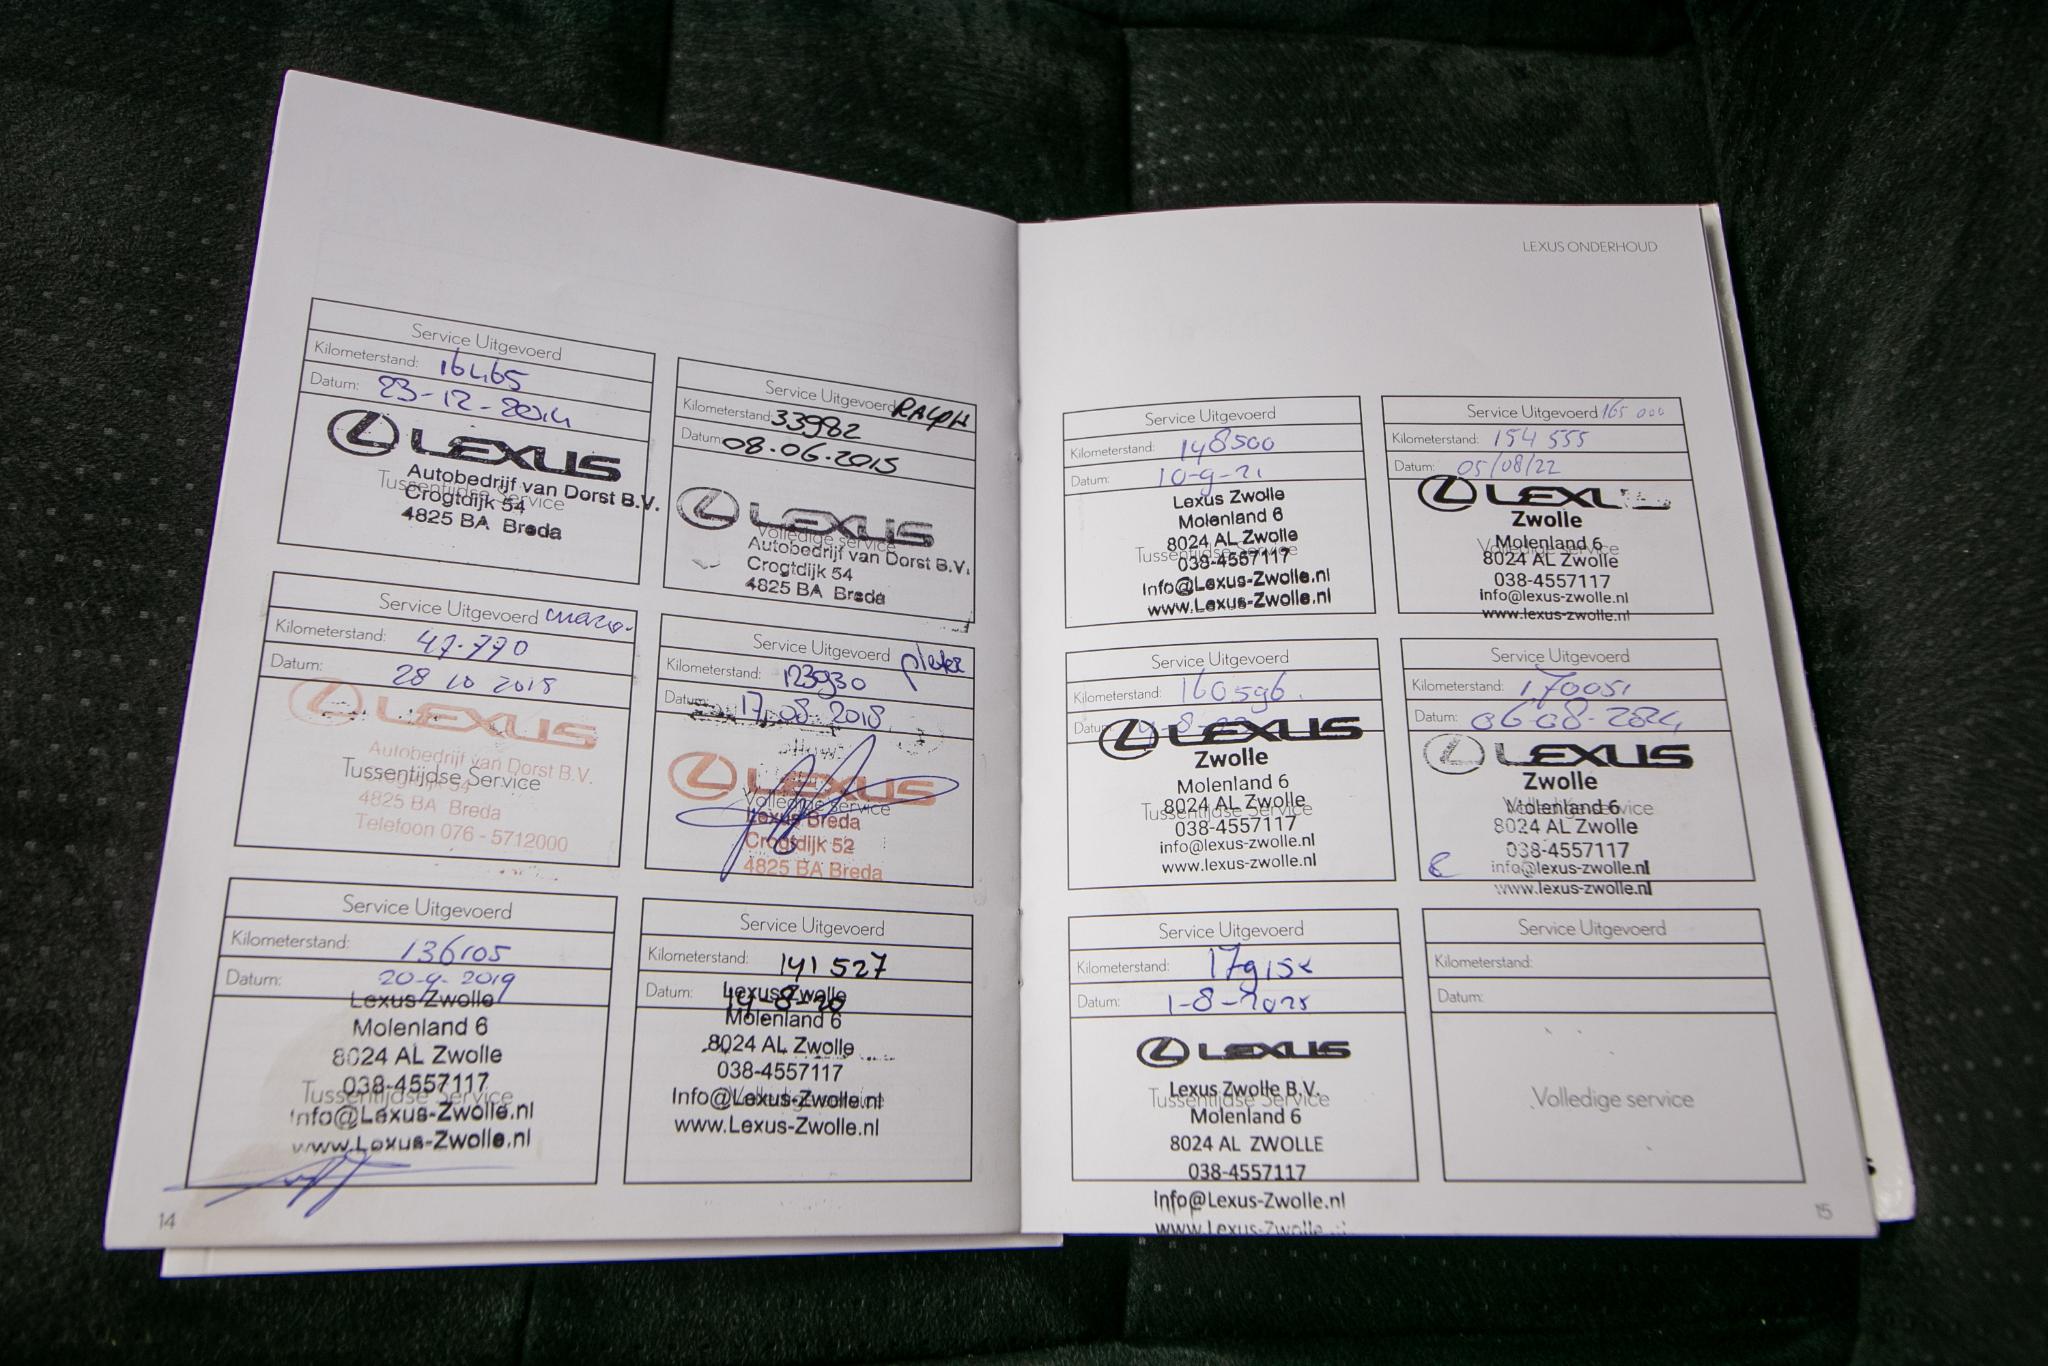 Service Uitgevoerd
Kilometerstand: 16465
Datum: 23-12-2014
LEXUS
Autobedrijf van Dorst B.V.
Tussentijdse Service
Crogtdijk 54
4825 BA Breda
Service Uitgevoerd RALPH
Kilometerstand: 33982
Datum: 08.06.2015
LEXUS
Volledige service
Autobedrijf van Dorst B.V.
Crogtdijk 54
4825 BA Breda
Service Uitgevoerd
Kilometerstand: 47.770
Datum: 28 10 2015
LEXUS
Autobedrijf van Dorst B.V.
Tussentijdse Service
Crogtdijk 54
4825 BA Breda
Telefoon 076 - 5712000
Service Uitgevoerd
Kilometerstand: 123930
Datum: 17.08 2018
LEXUS
Volledige service
Lexus Breda
Crogtdijk 52
4825 BA Breda
Service Uitgevoerd
Kilometerstand: 136105
Datum: 20-9-2019
Lexus Zwolle
Molenland 6
8024 AL Zwolle
038-4557117
Tussentijdse Service
Info@Lexus-Zwolle.nl
www.Lexus-Zwolle.nl
Service Uitgevoerd
Kilometerstand: 141 527
Datum: 14-8-20
Lexus Zwolle
Molenland 6
8024 AL Zwolle
038-4557117
Volledige service
Info@Lexus-Zwolle.nl
www.Lexus-Zwolle.nl
14
LEXUS ONDERHOUD
Service Uitgevoerd
Kilometerstand: 148500
Datum: 10-9-21
Lexus Zwolle
Molenland 6
8024 AL Zwolle
Tussentijdse Service
038-4557117
Info@Lexus-Zwolle.nl
www.Lexus-Zwolle.nl
Service Uitgevoerd 165 000
Kilometerstand: 154 555
Datum: 05/08/22
LEXUS
Zwolle
Molenland 6
Volledige service
8024 AL Zwolle
038-4557117
info@lexus-zwolle.nl
www.lexus-zwolle.nl
Service Uitgevoerd
Kilometerstand: 160596.
Datum:
LEXUS
Zwolle
Molenland 6
8024 AL Zwolle
Tussentijdse Service
038-4557117
info@lexus-zwolle.nl
www.lexus-zwolle.nl
Service Uitgevoerd
Kilometerstand: 170051
Datum: 06-08-2024
LEXUS
Zwolle
Molenland 6
Volledige service
8024 AL Zwolle
038-4557117
info@lexus-zwolle.nl
www.lexus-zwolle.nl
Service Uitgevoerd
Kilometerstand:
Datum: 1-8-2025
LEXUS
Lexus Zwolle B.V.
Tussentijdse Service
Molenland 6
8024 AL ZWOLLE
038-4557117
info@Lexus-Zwolle.nl
www.Lexus-Zwolle.nl
Service Uitgevoerd
Kilometerstand:
Datum:
Volledige service
15